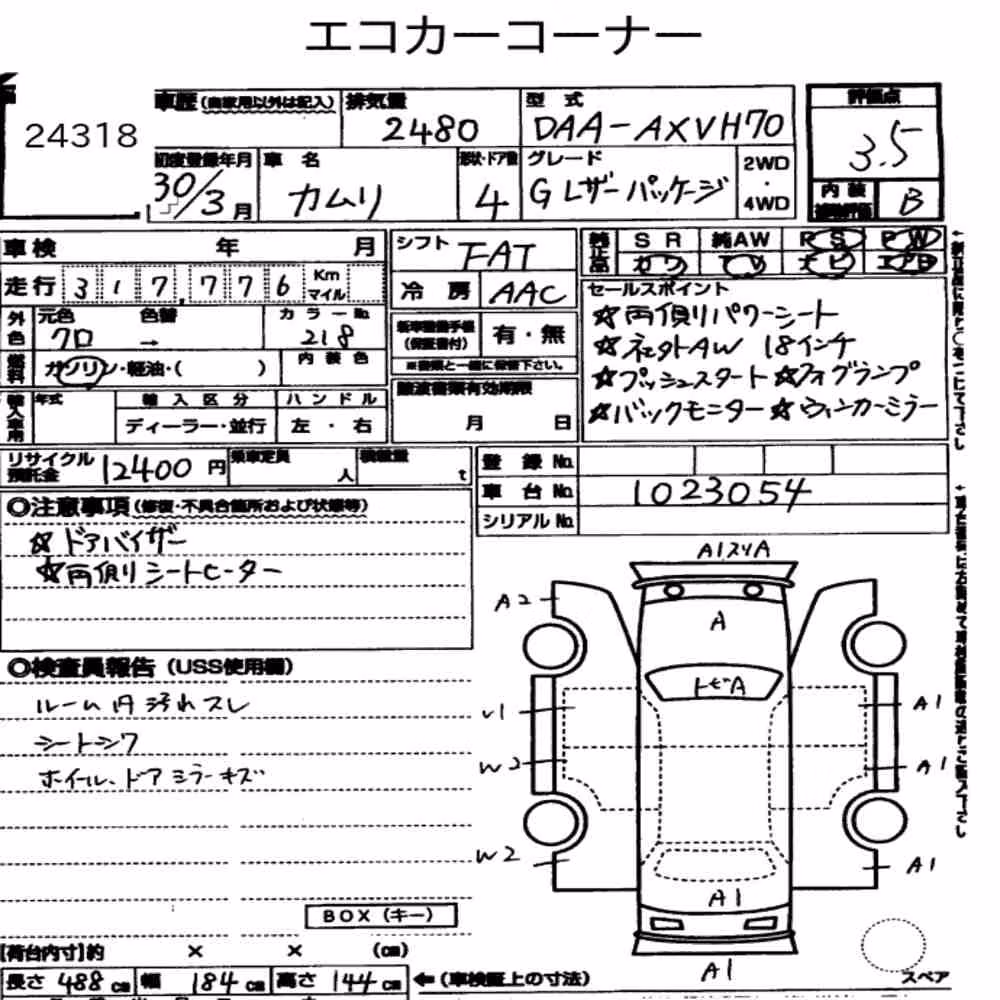 エコカーコーナー
24318
車歴(自家用以外は記入)
排気量
2480
型式
DAA-AXVH70
評価点
3.5
内装
補助評価
B
初度登録年月
30/3月
車名
カムリ
形状・ドア数
4
グレード
Gレザーパッケージ
2WD
・
4WD
車検 年 月
走行 317,776 Km
マイル
シフト
FAT
冷房
AAC
純正品
SR 純AW PS PW
カワ TV ナビ エアB
外色
元色 色替 カラーNo.
クロ → 218
燃料
ガソリン・軽油・( )
内装色
新車整備手帳
(保証書付)
有・無
※書類と一緒に保管下さい。
セールスポイント
☆両側リパワーシート
☆社外AW 18インチ
☆プッシュスタート ☆フォグランプ
☆バックモニター ☆ウィンカーミラー
輸入車用
年式
輸入区分
ディーラー・並行
ハンドル
左・右
譲渡書類有効期限
月 日
リサイクル
預託金
12400円
乗車定員
人
積載量
t
登録No.
車台No. 1023054
シリアルNo.
◎注意事項(修復・不具合箇所および状態等)
☆ドアバイザー
☆両側リシートヒーター
◎検査員報告(USS使用欄)
ルーム内汚れスレ
シートシワ
ホイール、ドアミラーキズ
A1スリA
A2
A
トビA
U1
A1
W2
A1
W2
A1
A1
A1
スペア
BOX(キー)
【荷台内寸】約 × × (cm)
長さ 488cm 幅 184cm 高さ 144cm ←(車検証上の寸法)